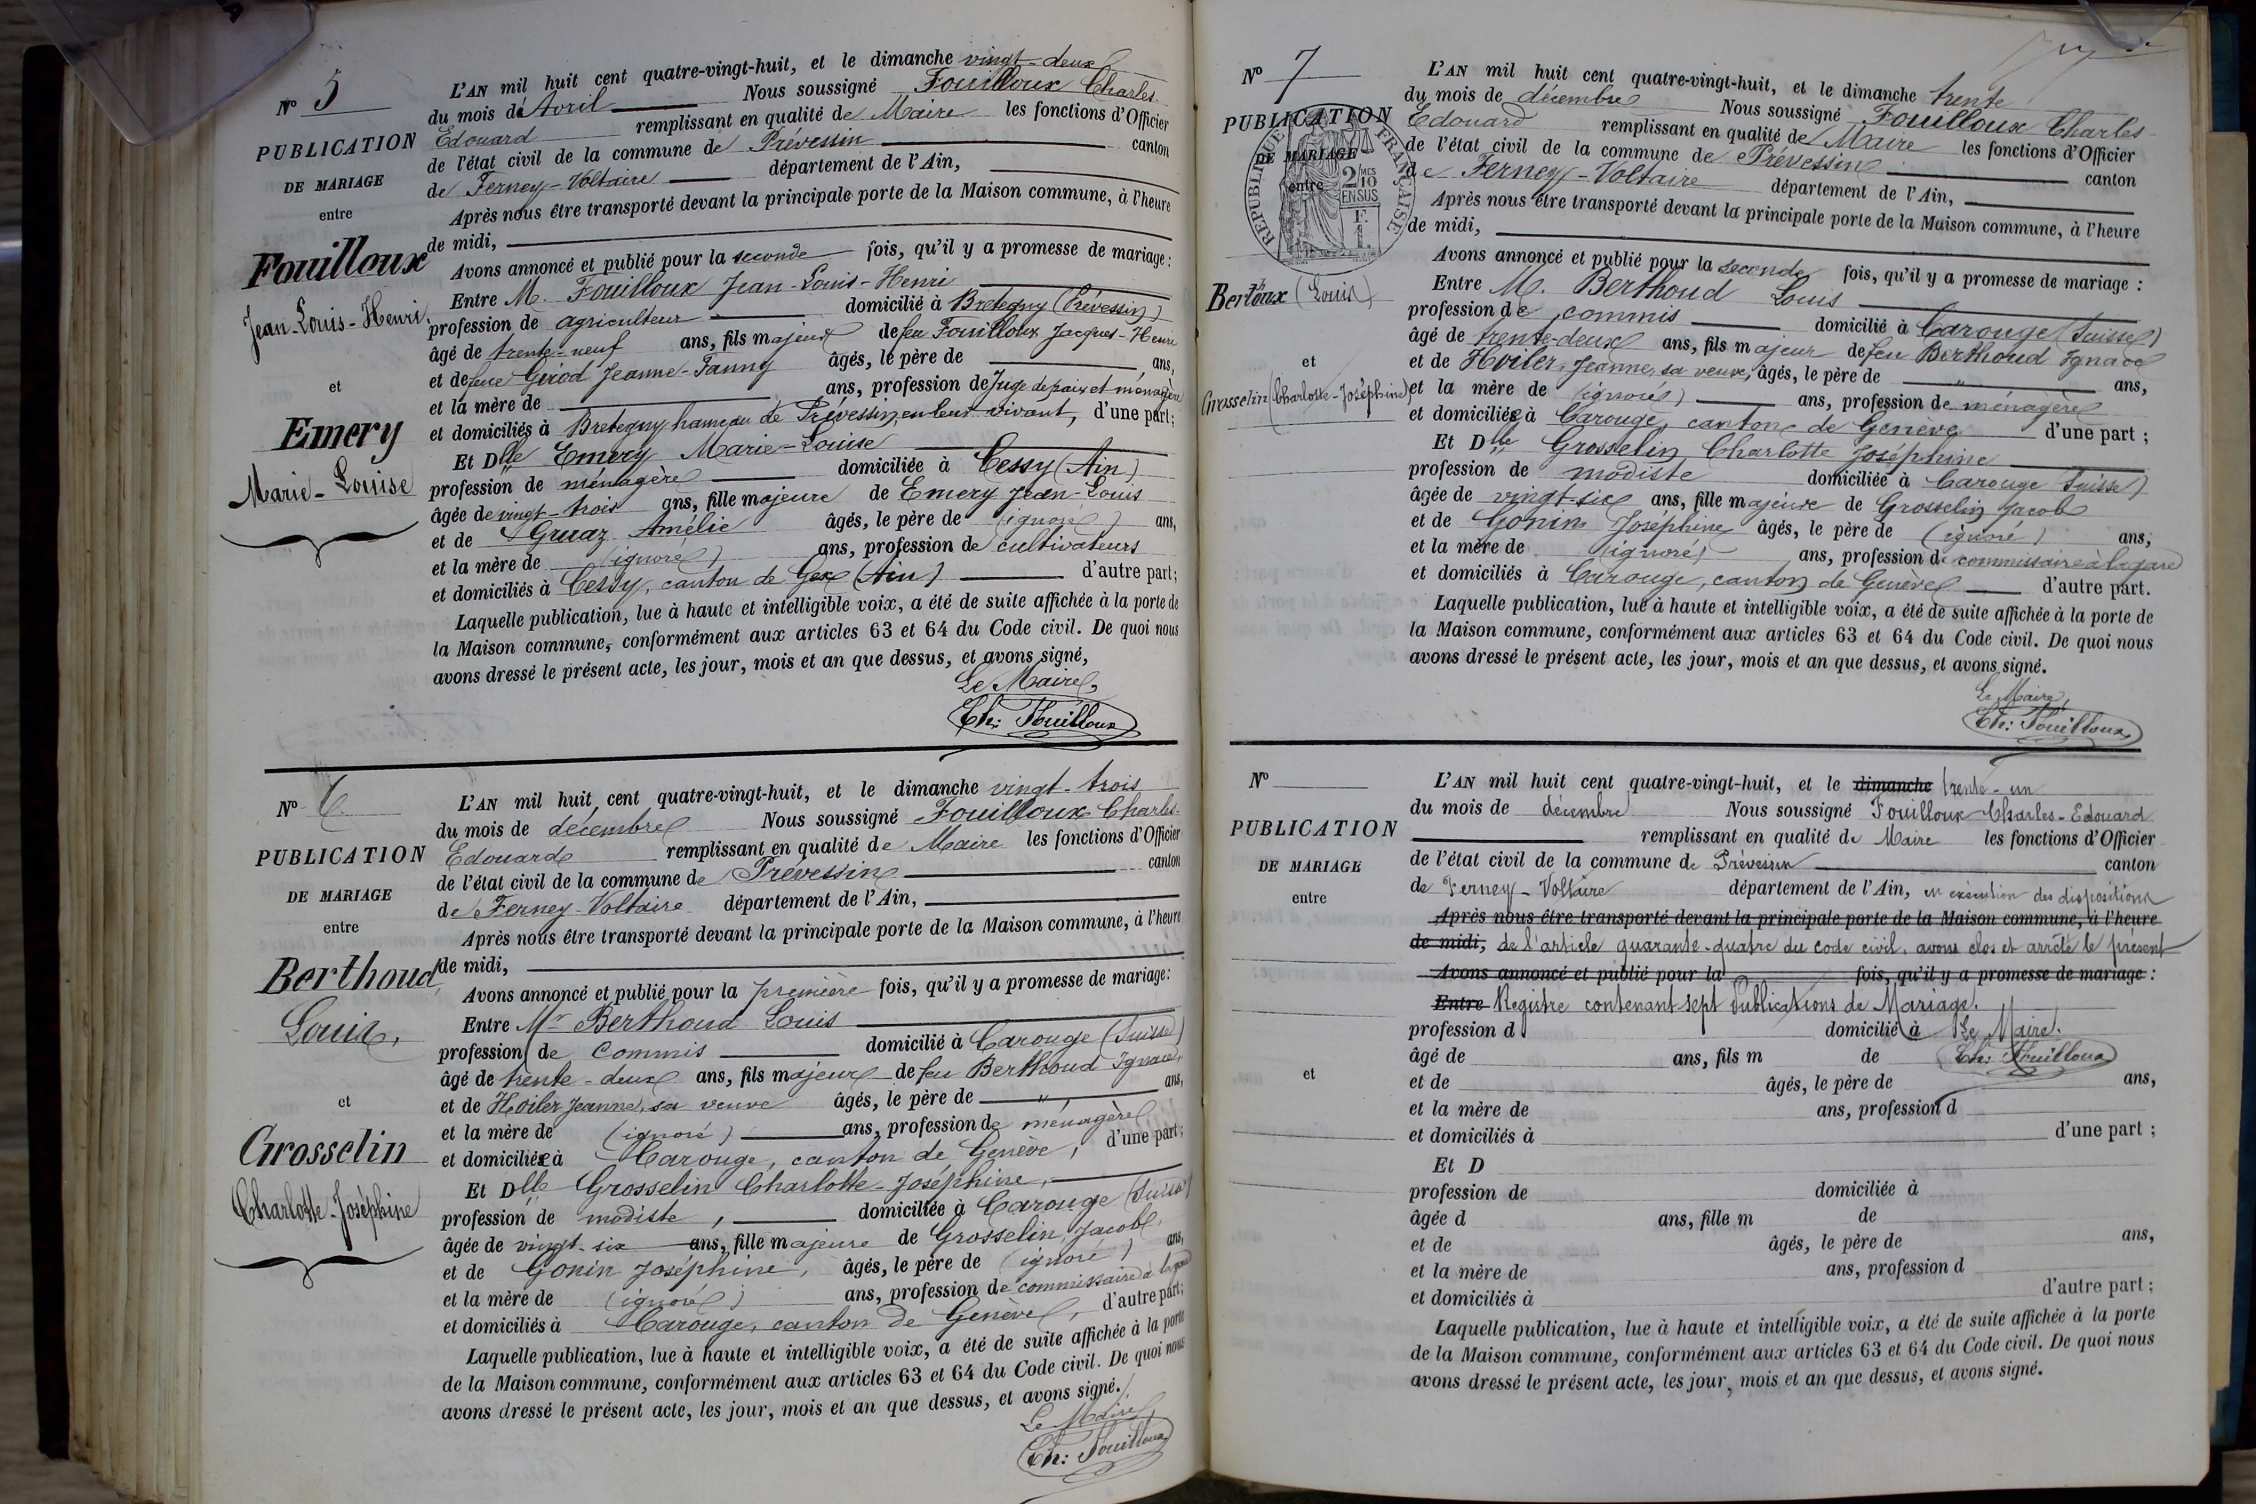 N° 5
PUBLICATION
DE MARIAGE
entre
Fouilloux
Jean-Louis-Henri,
et
Emery
Marie-Louise
L'AN mil huit cent quatre-vingt-huit, et le dimanche vingt-deux
du mois de Avril Nous soussigné Fouilloux Charles-
Edouard remplissant en qualité de Maire les fonctions d'Officier
de l'état civil de la commune de Prévessin canton
de Ferney-Voltaire département de l'Ain,
Après nous être transporté devant la principale porte de la Maison commune, à l'heure
de midi,
Avons annoncé et publié pour la seconde fois, qu'il y a promesse de mariage :
Entre M. Fouilloux Jean-Louis-Henri
profession de agriculteur domicilié à Bretegny (Prévessin)
âgé de trente-neuf ans, fils majeur de feu Fouilloux Jacques-Henri
et de feue Girod Jeanne-Fanny âgés, le père de ans,
et la mère de ans, profession de Juge de paix et ménagère
et domiciliés à Bretegny hameau de Prévessin, en leur vivant, d'une part;
Et Dlle Emery Marie-Louise
profession de ménagère domiciliée à Cessy (Ain)
âgée de vingt-trois ans, fille majeure de Emery Jean-Louis
et de Gruaz Amélie âgés, le père de (ignoré) ans,
et la mère de (ignoré) ans, profession de cultivateurs
et domiciliés à Cessy, canton de Gex (Ain) d'autre part;
Laquelle publication, lue à haute et intelligible voix, a été de suite affichée à la porte de
la Maison commune, conformément aux articles 63 et 64 du Code civil. De quoi nous
avons dressé le présent acte, les jour, mois et an que dessus, et avons signé,
Le Maire,
Ch: Fouilloux
N° 6
PUBLICATION
DE MARIAGE
entre
Berthoud,
Louis,
et
Grosselin
Charlotte-Joséphine
L'AN mil huit cent quatre-vingt-huit, et le dimanche vingt-trois
du mois de décembre Nous soussigné Fouilloux Charles-
Edouard remplissant en qualité de Maire les fonctions d'Officier
de l'état civil de la commune de Prévessin canton
de Ferney-Voltaire département de l'Ain,
Après nous être transporté devant la principale porte de la Maison commune, à l'heure
de midi,
Avons annoncé et publié pour la première fois, qu'il y a promesse de mariage:
Entre Mr Berthoud Louis
profession de commis domicilié à Carouge (Suisse)
âgé de trente-deux ans, fils majeur de feu Berthoud Ignace,
et de Hoiler Jeanne, sa veuve âgés, le père de " ans,
et la mère de (ignoré) ans, profession de ménagère
et domiciliée à Carouge, canton de Genève, d'une part;
Et Dlle Grosselin Charlotte-Joséphine,
profession de modiste, domiciliée à Carouge (Suisse)
âgée de vingt-six ans, fille majeure de Grosselin, Jacob,
et de Gonin Joséphine, âgés, le père de (ignoré) ans,
et la mère de (ignoré) ans, profession de commissaire à la gare
et domiciliés à Carouge, canton de Genève, d'autre part;
Laquelle publication, lue à haute et intelligible voix, a été de suite affichée à la porte
de la Maison commune, conformément aux articles 63 et 64 du Code civil. De quoi nous
avons dressé le présent acte, les jour, mois et an que dessus, et avons signé.
Le Maire,
Ch: Fouilloux
N° 7
PUBLICATION
DE MARIAGE
entre
RÉPUBLIQUE FRANÇAISE
2/10 MES
EN SUS
F.
1.
Bertoux (Louis)
et
Grosselin (Charlotte-Joséphine)
L'AN mil huit cent quatre-vingt-huit, et le dimanche trente
du mois de décembre Nous soussigné Fouilloux Charles-
Edouard remplissant en qualité de Maire les fonctions d'Officier
de l'état civil de la commune de Prévessin canton
de Ferney-Voltaire département de l'Ain,
Après nous être transporté devant la principale porte de la Maison commune, à l'heure
de midi,
Avons annoncé et publié pour la seconde fois, qu'il y a promesse de mariage :
Entre M. Berthoud Louis
profession de commis domicilié à Carouge (Suisse)
âgé de trente-deux ans, fils majeur de feu Berthoud Ignace
et de Hoiler, Jeanne, sa veuve, âgés, le père de " ans,
et la mère de (ignoré) ans, profession de ménagère
et domiciliée à Carouge, canton de Genève d'une part ;
Et Dlle Grosselin Charlotte Joséphine
profession de modiste domiciliée à Carouge (Suisse)
âgée de vingt-six ans, fille majeure de Grosselin Jacob
et de Gonin Joséphine âgés, le père de (ignoré) ans,
et la mère de (ignoré) ans, profession de commissaire à la gare
et domiciliés à Carouge, canton de Genève d'autre part.
Laquelle publication, lue à haute et intelligible voix, a été de suite affichée à la porte de
la Maison commune, conformément aux articles 63 et 64 du Code civil. De quoi nous
avons dressé le présent acte, les jour, mois et an que dessus, et avons signé.
Le Maire,
Ch: Fouilloux
N°
PUBLICATION
DE MARIAGE
entre
et
L'AN mil huit cent quatre-vingt-huit, et le dimanche trente-un
du mois de décembre Nous soussigné Fouilloux Charles-Edouard
remplissant en qualité de Maire les fonctions d'Officier
de l'état civil de la commune de Prévessin canton
de Ferney-Voltaire département de l'Ain, en exécution des dispositions
Après nous être transporté devant la principale porte de la Maison commune, à l'heure
de midi, de l'article quarante-quatre du code civil, avons clos et arrêté le présent
Avons annoncé et publié pour la fois, qu'il y a promesse de mariage :
Entre Registre contenant sept Publications de Mariage.
profession d domicilié à Le Maire.
âgé de ans, fils m de Ch: Fouilloux
et de âgés, le père de ans,
et la mère de ans, profession d
et domiciliés à d'une part ;
Et D
profession de domiciliée à
âgée d ans, fille m de
et de âgés, le père de ans,
et la mère de ans, profession d
et domiciliés à d'autre part ;
Laquelle publication, lue à haute et intelligible voix, a été de suite affichée à la porte
de la Maison commune, conformément aux articles 63 et 64 du Code civil. De quoi nous
avons dressé le présent acte, les jour, mois et an que dessus, et avons signé.